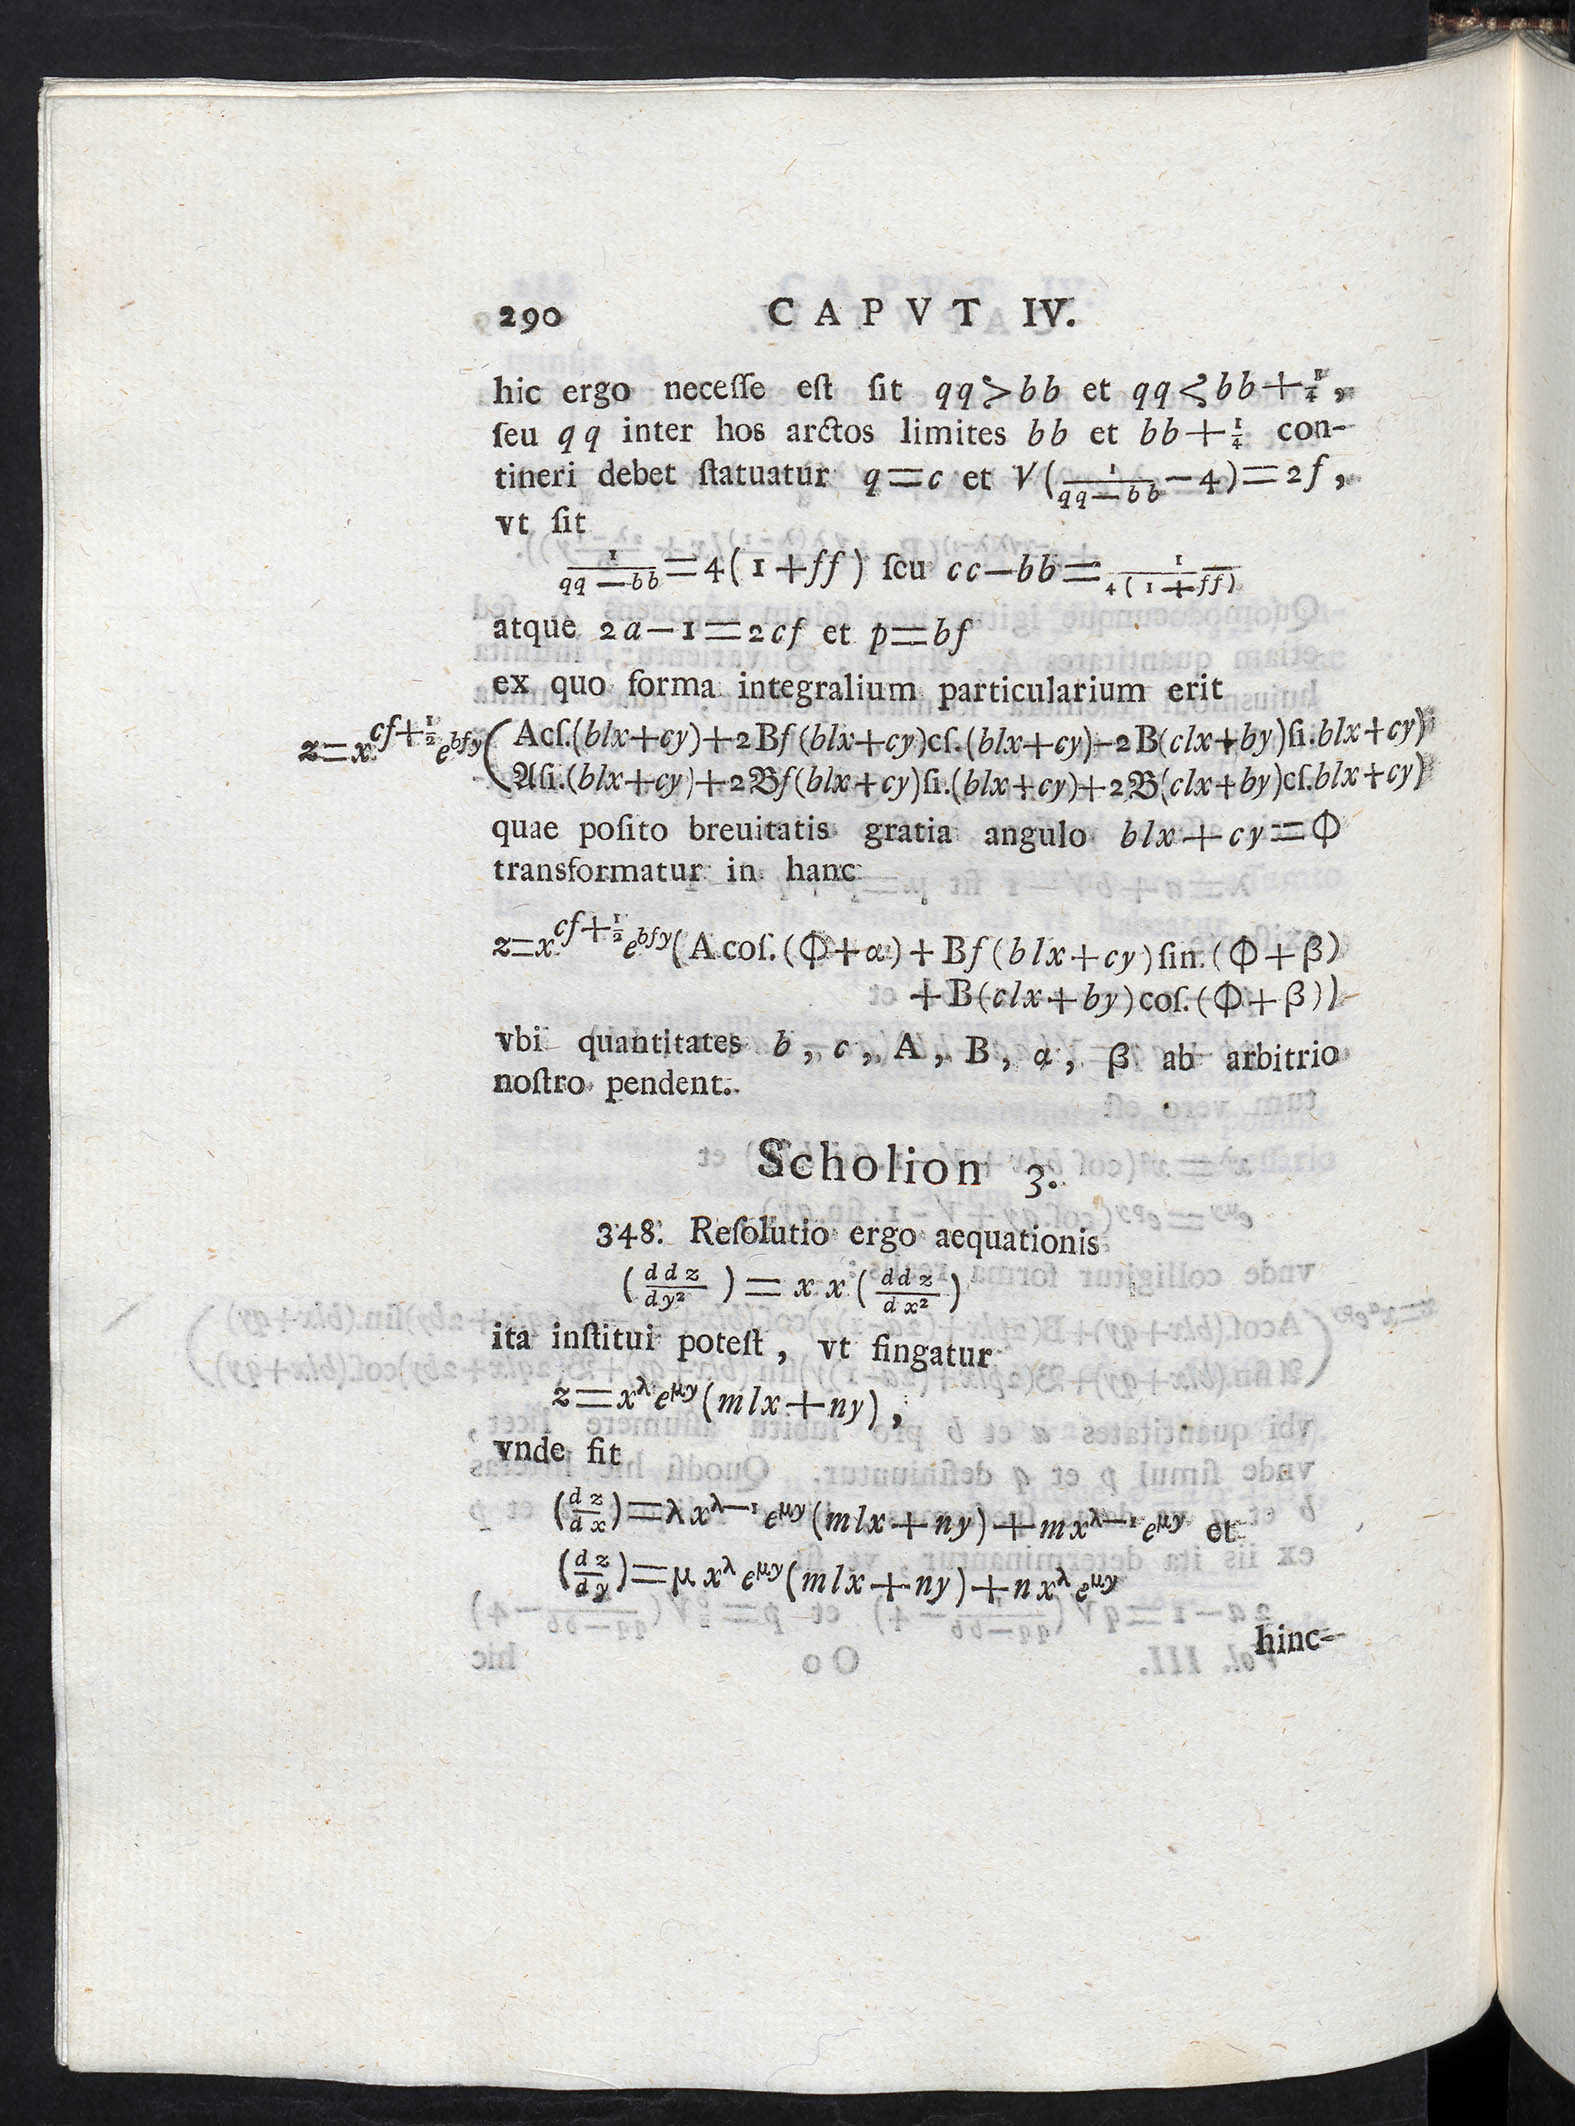 290 CAPVT IV.
hic ergo neceſſe eſt ſit qq > bb et qq < bb + 1/4,
ſeu qq inter hos arctos limites bb et bb + 1/4 con-
tineri debet ſtatuatur q = c et V(1/(qq — bb) — 4) = 2f,
vt ſit
1/(qq — bb) = 4(1 + ff) ſeu cc — bb = 1/(4(1 + ff))
atque 2a — 1 = 2cf et p = bf
ex quo forma integralium particularium erit
z = x^{cf + 1/2} e^{bfy} ( Acſ.(blx + cy) + 2Bf(blx + cy)cſ.(blx + cy) — 2B(clx + by)ſi.blx + cy)
𝔄ſi.(blx + cy) + 2𝔅f(blx + cy)ſi.(blx + cy) + 2𝔅(clx + by)cſ.blx + cy)
quae poſito breuitatis gratia angulo blx + cy = Φ
transformatur in hanc
z = x^{cf + 1/2} e^{bfy} (A coſ.(Φ + α) + Bf(blx + cy) ſin.(Φ + β)
+ B(clx + by) coſ.(Φ + β))
vbi quantitates b, c, A, B, α, β ab arbitrio
noſtro pendent.
Scholion 3.
348. Reſolutio ergo aequationis
(ddz/dy²) = xx(ddz/dx²)
ita inſtitui poteſt, vt fingatur
z = x^λ e^{μy} (mlx + ny),
vnde fit
(dz/dx) = λx^{λ—1} e^{μy} (mlx + ny) + mx^{λ—1} e^{μy} et
(dz/dy) = μx^λ e^{μy} (mlx + ny) + nx^λ e^{μy}
hinc